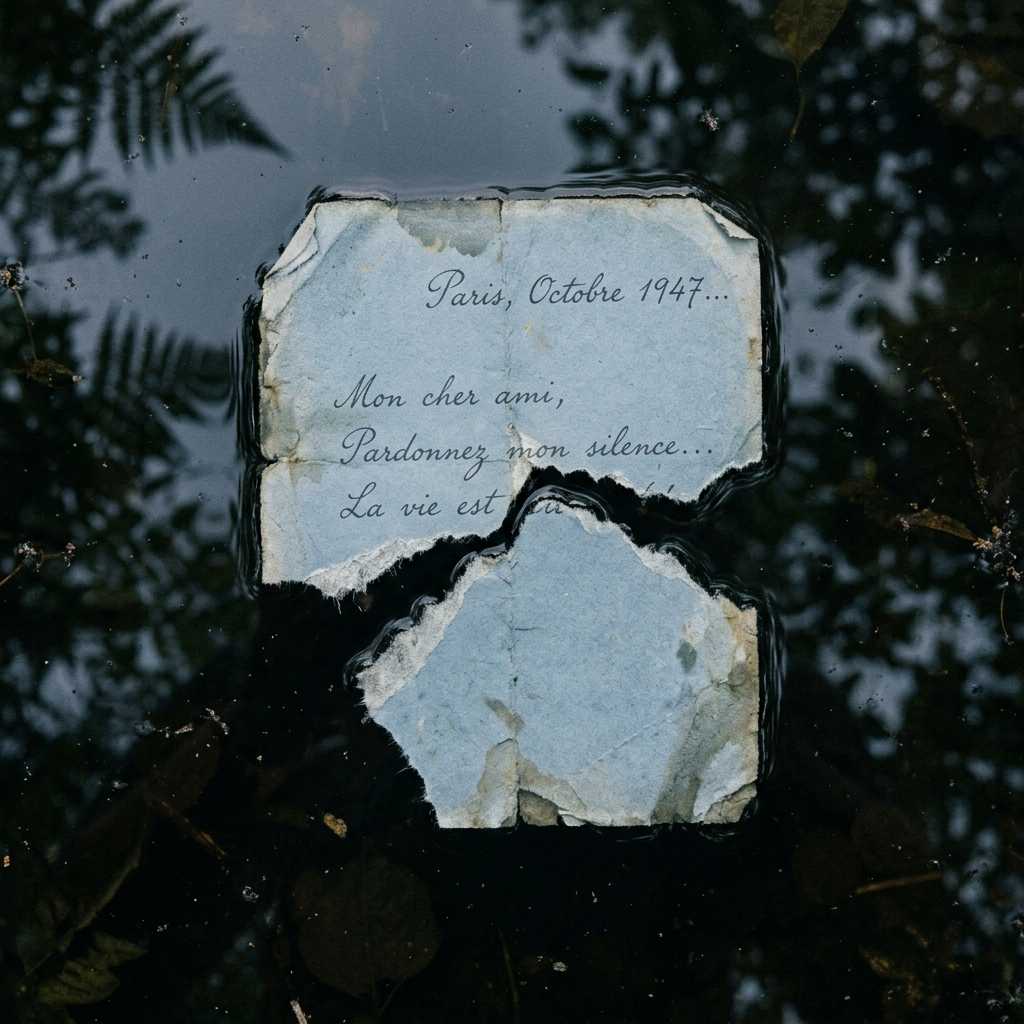 Paris, Octobre 1947...
Mon cher ami,
Pardonnez mon silence...
La vie est